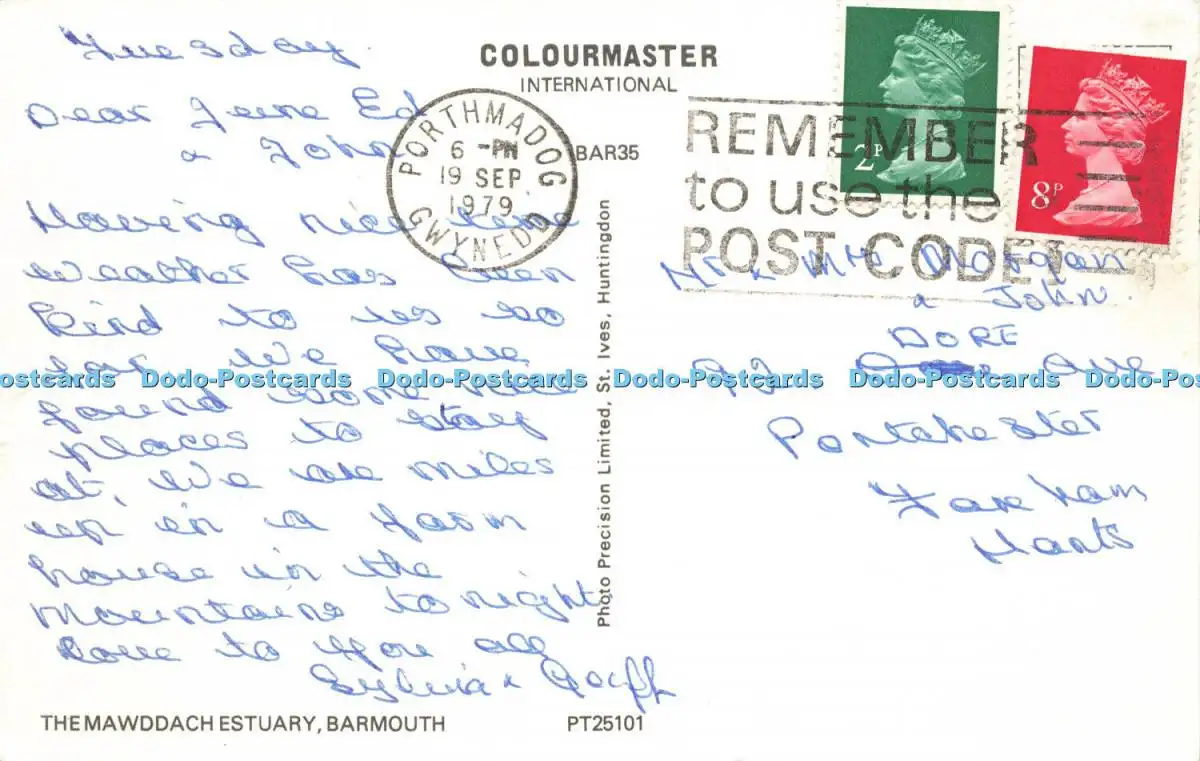 Tuesday
COLOURMASTER
INTERNATIONAL
BAR35
Dear June Ed
& John
Having nice time
Weather has been
kind to us so
far. We have
found some nice
places to stay
at, We are miles
up in a farm
house in the
mountains tonight
Love to you all
Sylvia & Geoff
THE MAWDDACH ESTUARY, BARMOUTH
PT25101
Photo Precision Limited, St. Ives, Huntingdon
PORTHMADOG
6 -PM
19 SEP
1979
GWYNEDD
REMEMBER
to use the
POST CODE
2P
8P
Mr & Mrs Morgan
& John
DORE
92 Ave
Portchester
Fareham
Hants
Dodo-Postcards Dodo-Postcards Dodo-Postcards Dodo-Postcards Dodo-Postcards Dodo-Postcards